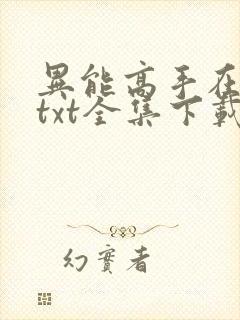 異能高手在
txt全集下載
幻實者